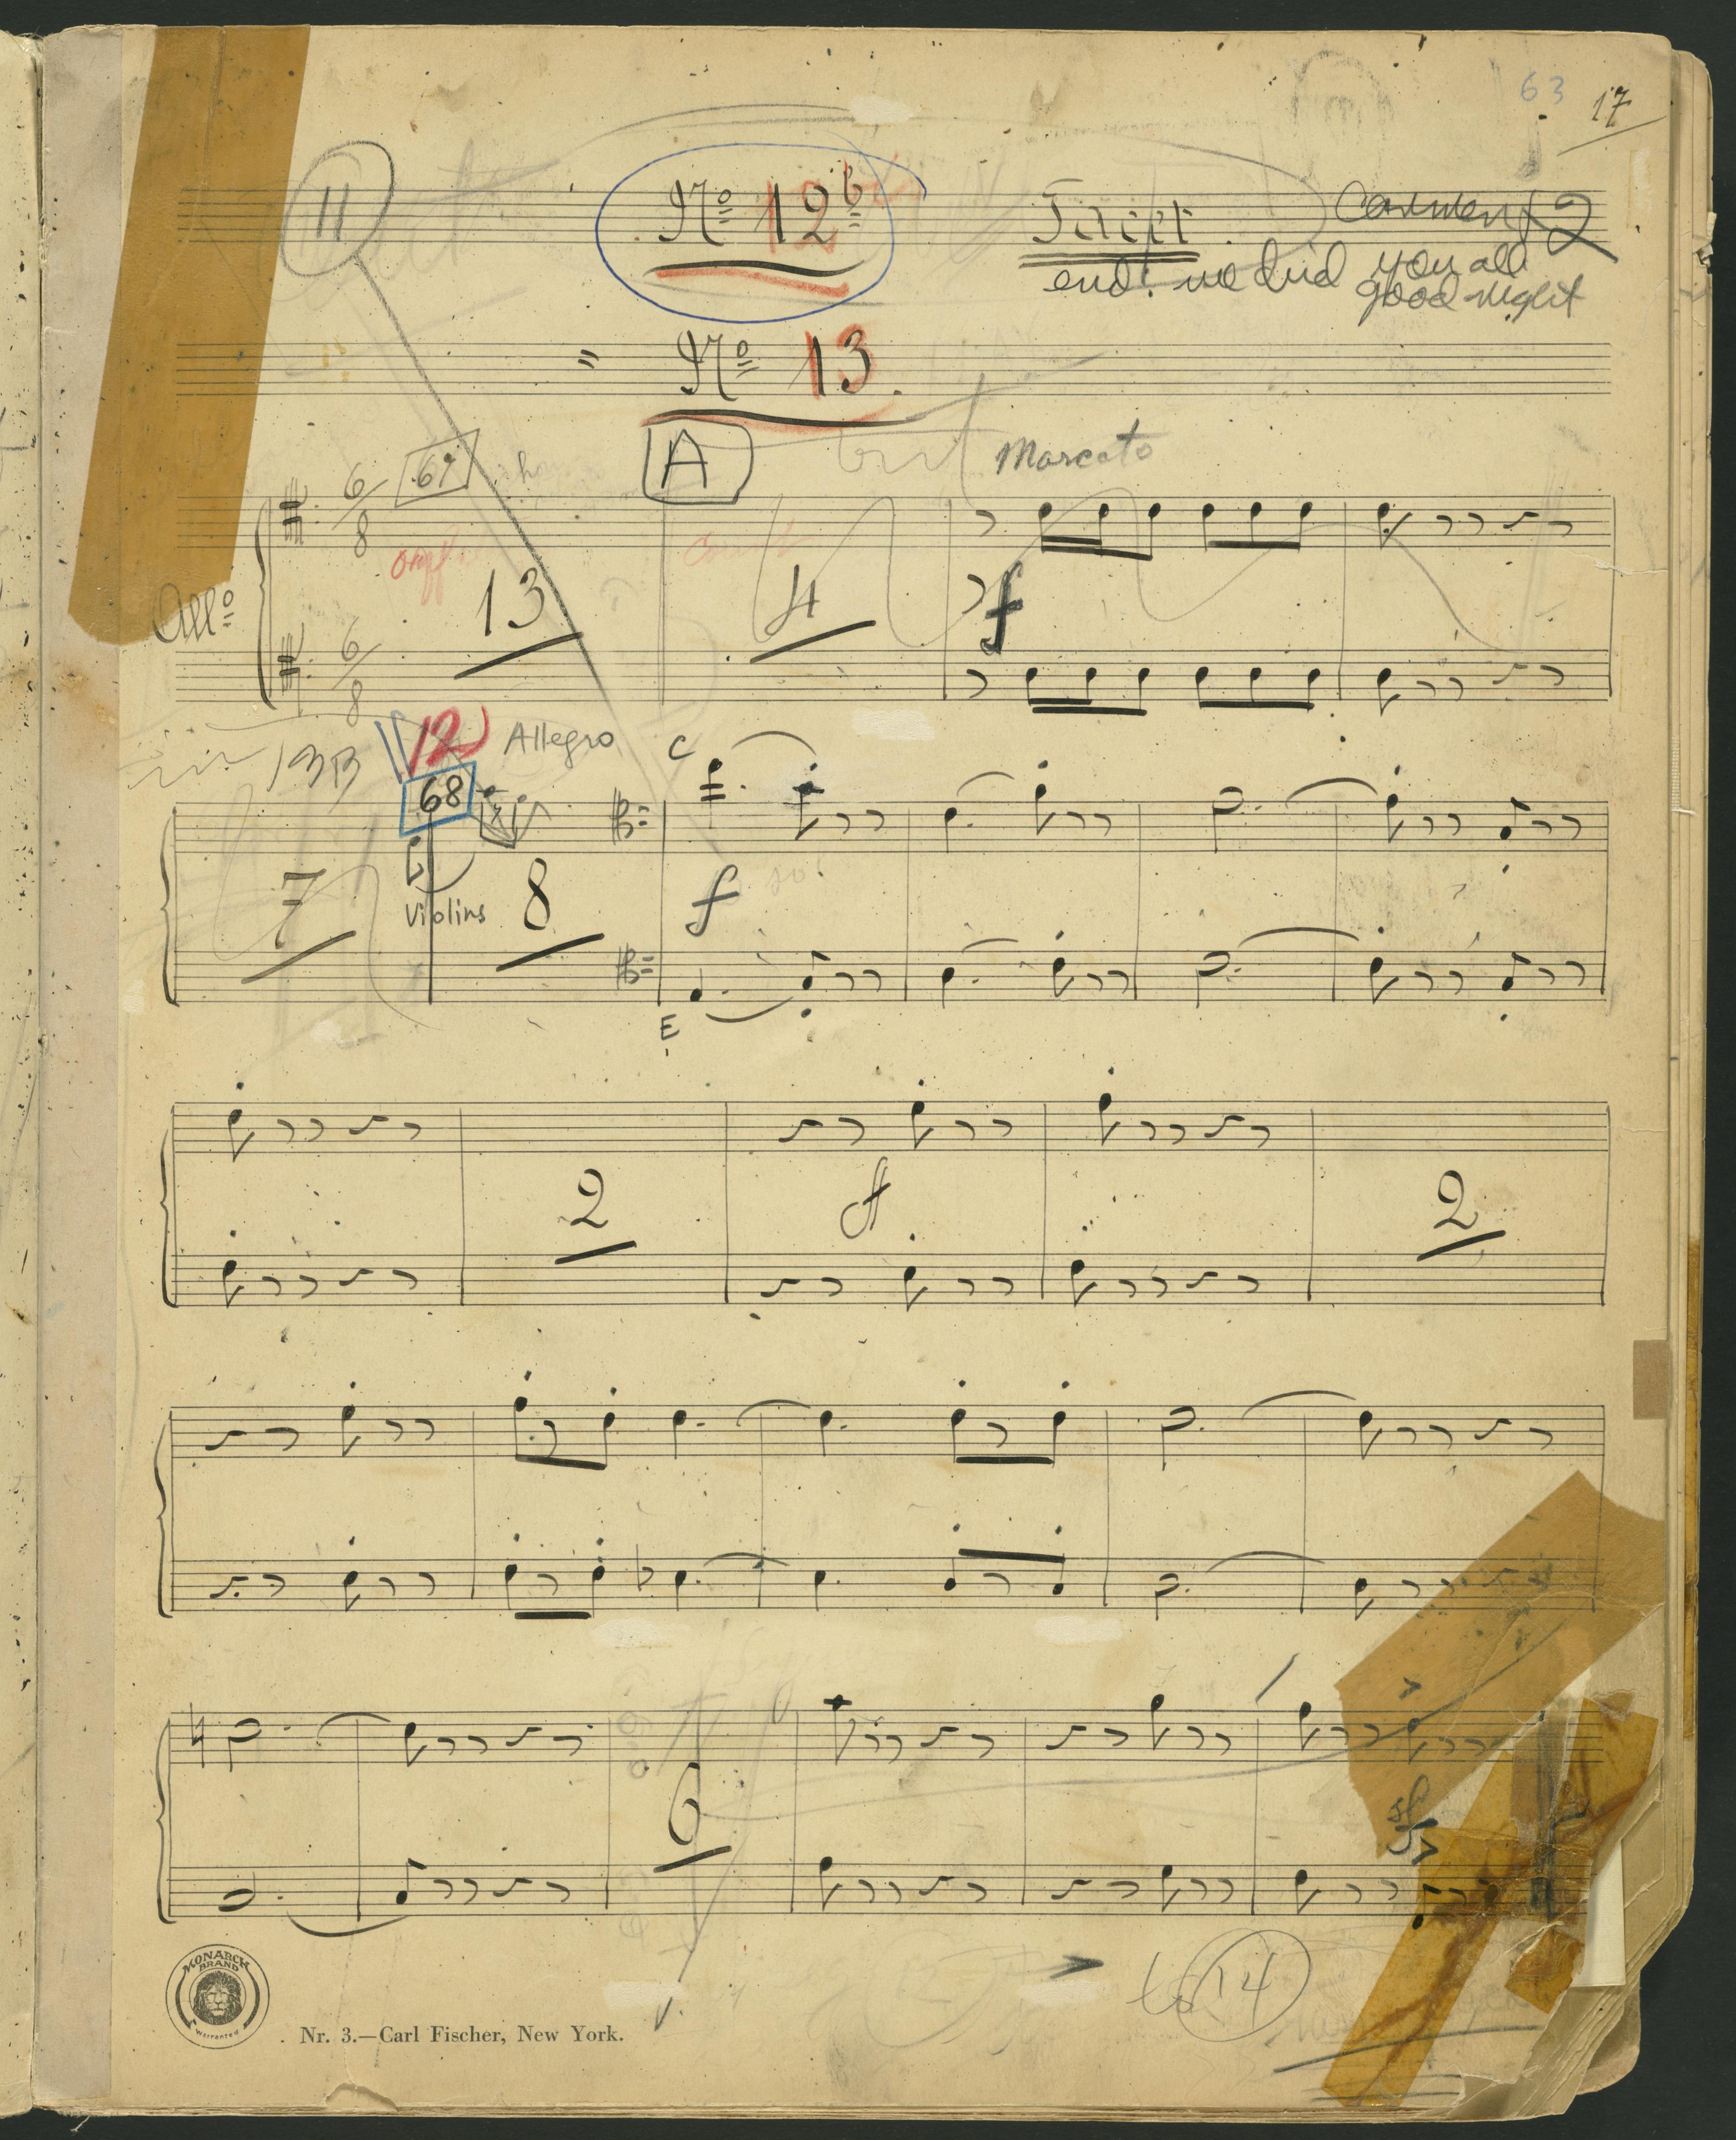 63 17
11 Nº 12b Tacet Carmen 2
end: we bid you all
good night
= Nº 13.
A Marcato
6/8 67
Allº 13 4 f
6/8
13B 12 Allegro C
68
7 Violins 8 f
E
2 f 2
6 sf
to 14
MONARCH
BRAND
Warranted
Nr. 3.—Carl Fischer, New York. V.